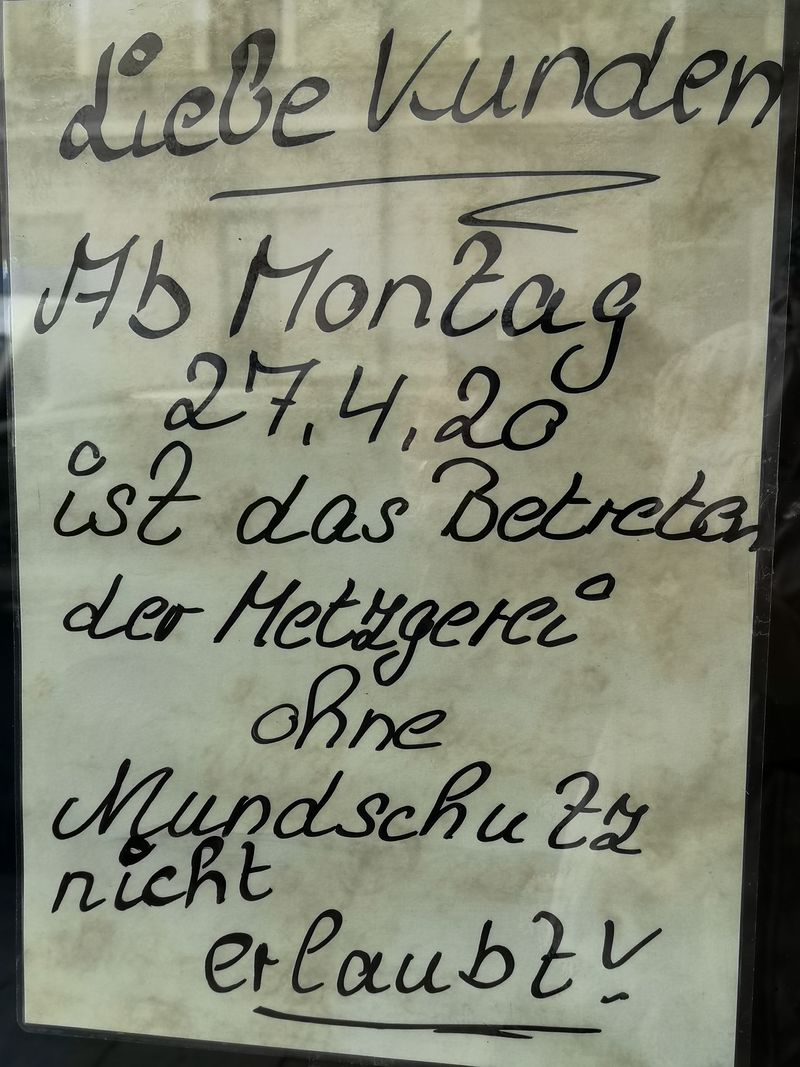 Liebe Kunden
Ab Montag
27.4.20
ist das Betreten
der Metzgerei
ohne
Mundschutz
nicht
erlaubt!